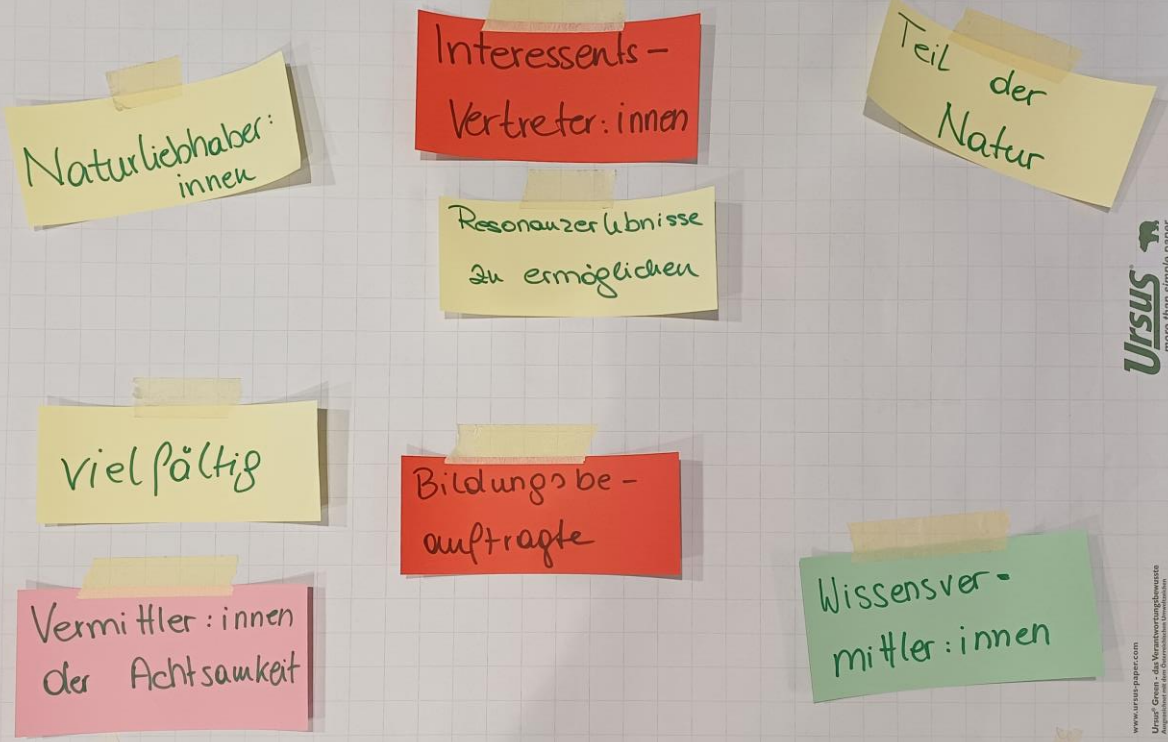 Naturliebhaber:
innen
Interessents-
Vertreter:innen
Teil der
Natur
Resonanzerlebnisse
zu ermöglichen
vielfältig
Bildungsbe-
auftragte
Vermittler:innen
der Achtsamkeit
Wissensver-
mittler:innen
Ursus®
more than simple paper
www.ursus-paper.com
Ursus® Green - das Verantwortungsbewusste
Ausgezeichnet mit dem Österreichischen Umweltzeichen